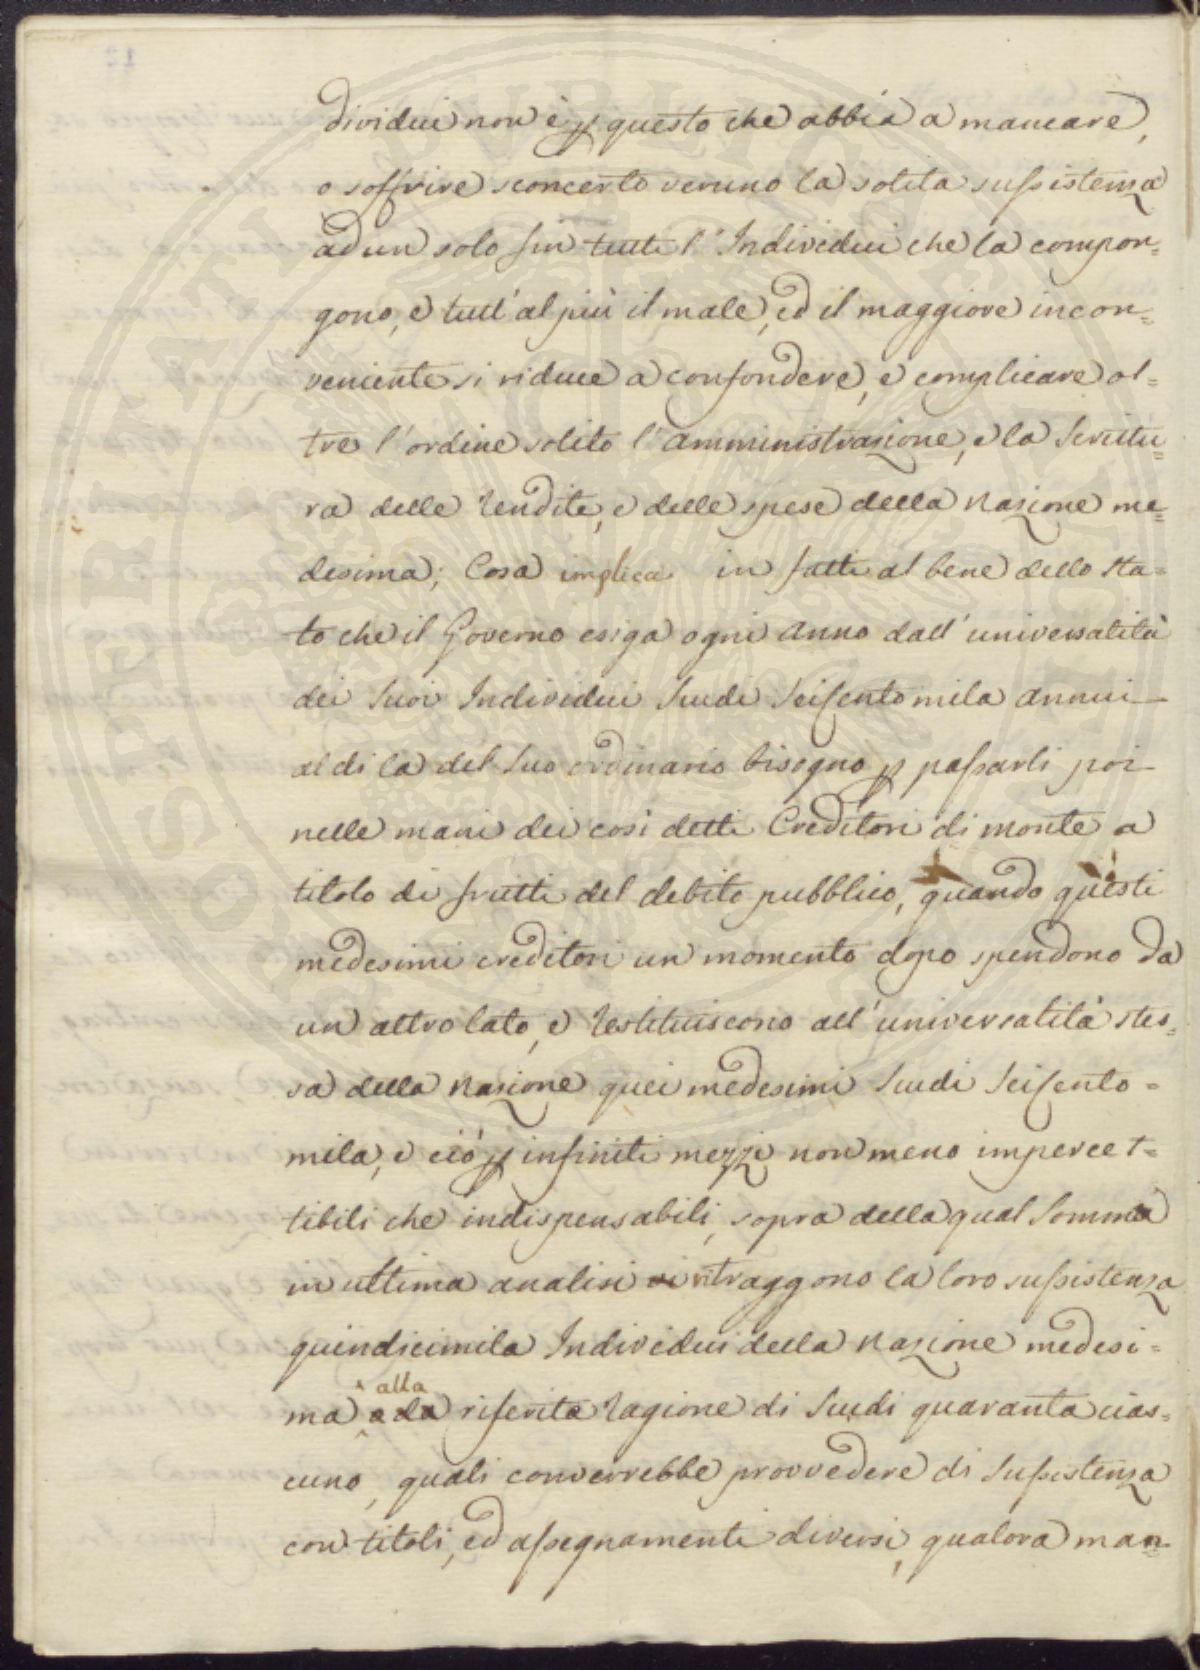 dividui non è p questo che abbia a mancare,
o soffrire sconcerto veruno la solita sussistenza
ad un solo fin tutti l'Individui che la compon=
gono, e tutt'al più il male, ed il maggiore incon=
veniente si riduce a confondere, e complicare ol=
tre l'ordine solito l'amministrazione, e la Scrittu=
ra delle Rendite, e delle spese della Nazione me=
desima; Cosa implica in fatti al bene dello Sta=
to che il Governo esiga ogni Anno dall'universalità
dei Suoi Individui Scudi Seicentomila annui
al di là del Suo ordinario bisogno p passarli poi
nelle mani dei così detti Creditori di monte a
titolo di frutti del debito pubblico, quando questi
medesimi creditori un momento dopo spendono da
un altro lato, e Restituiscono all'universalità stes=
sa della Nazione quei medesimi Scudi Seicento=
mila, e ciò p infiniti mezzi non meno impercet=
tibili che indispensabili, sopra della qual Somma
in ultima analisi ritraggono la loro sussistenza
quindicimila Individui della Nazione medesi=
ma alla riferita Ragione di Scudi quaranta cias=
cuno, quali converrebbe provvedere di Sussistenza
con titoli, ed assegnamenti diversi, qualora man=